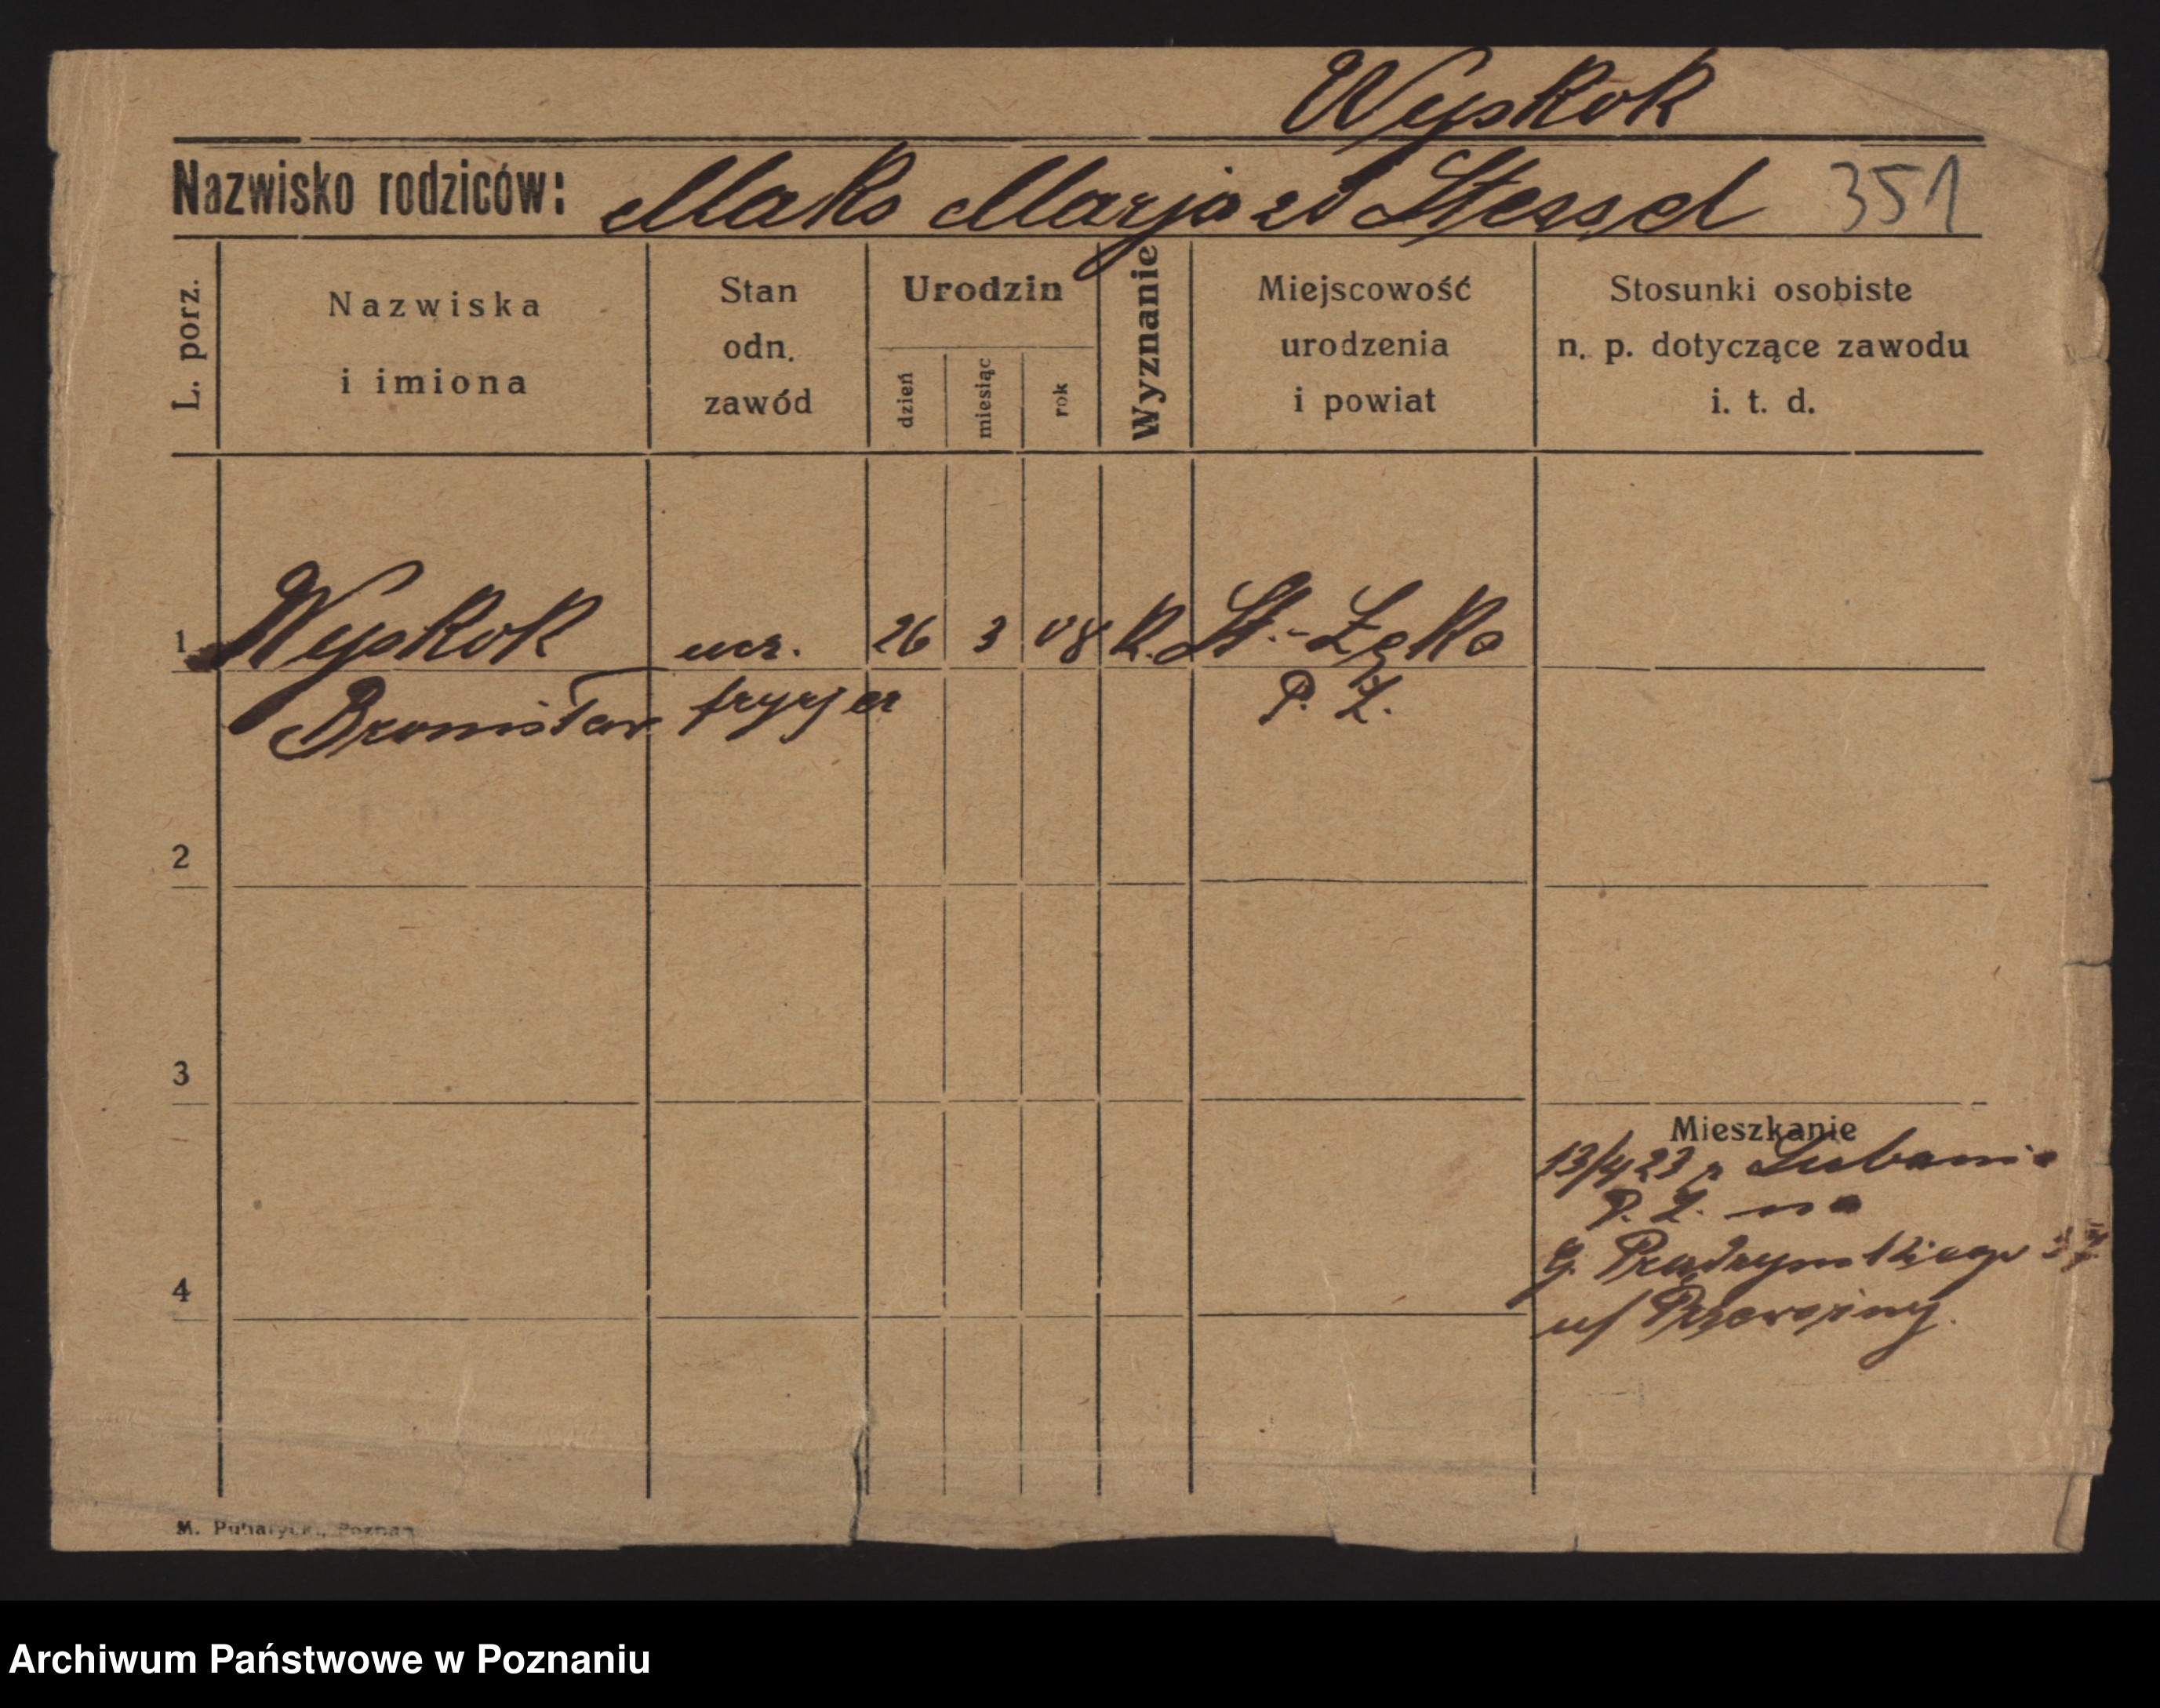 Wyskok
Nazwisko rodziców: Maks Marja zd Stessel 351
L. porz.
Nazwiska
i imiona
Stan
odn.
zawód
Urodzin
dzień
miesiąc
rok
Wyznanie
Miejscowość
urodzenia
i powiat
Stosunki osobiste
n. p. dotyczące zawodu
i. t. d.
1 Wyskok ucz. 26 3 08 k. St.-Łęka
Bronisław fryzjer P. Z.
2
3
Mieszkanie
13/4 23 z Lubonia
P. Z. na
4
G. Prądzyńskiego
u/
M. Poznań
Archiwum Państwowe w Poznaniu